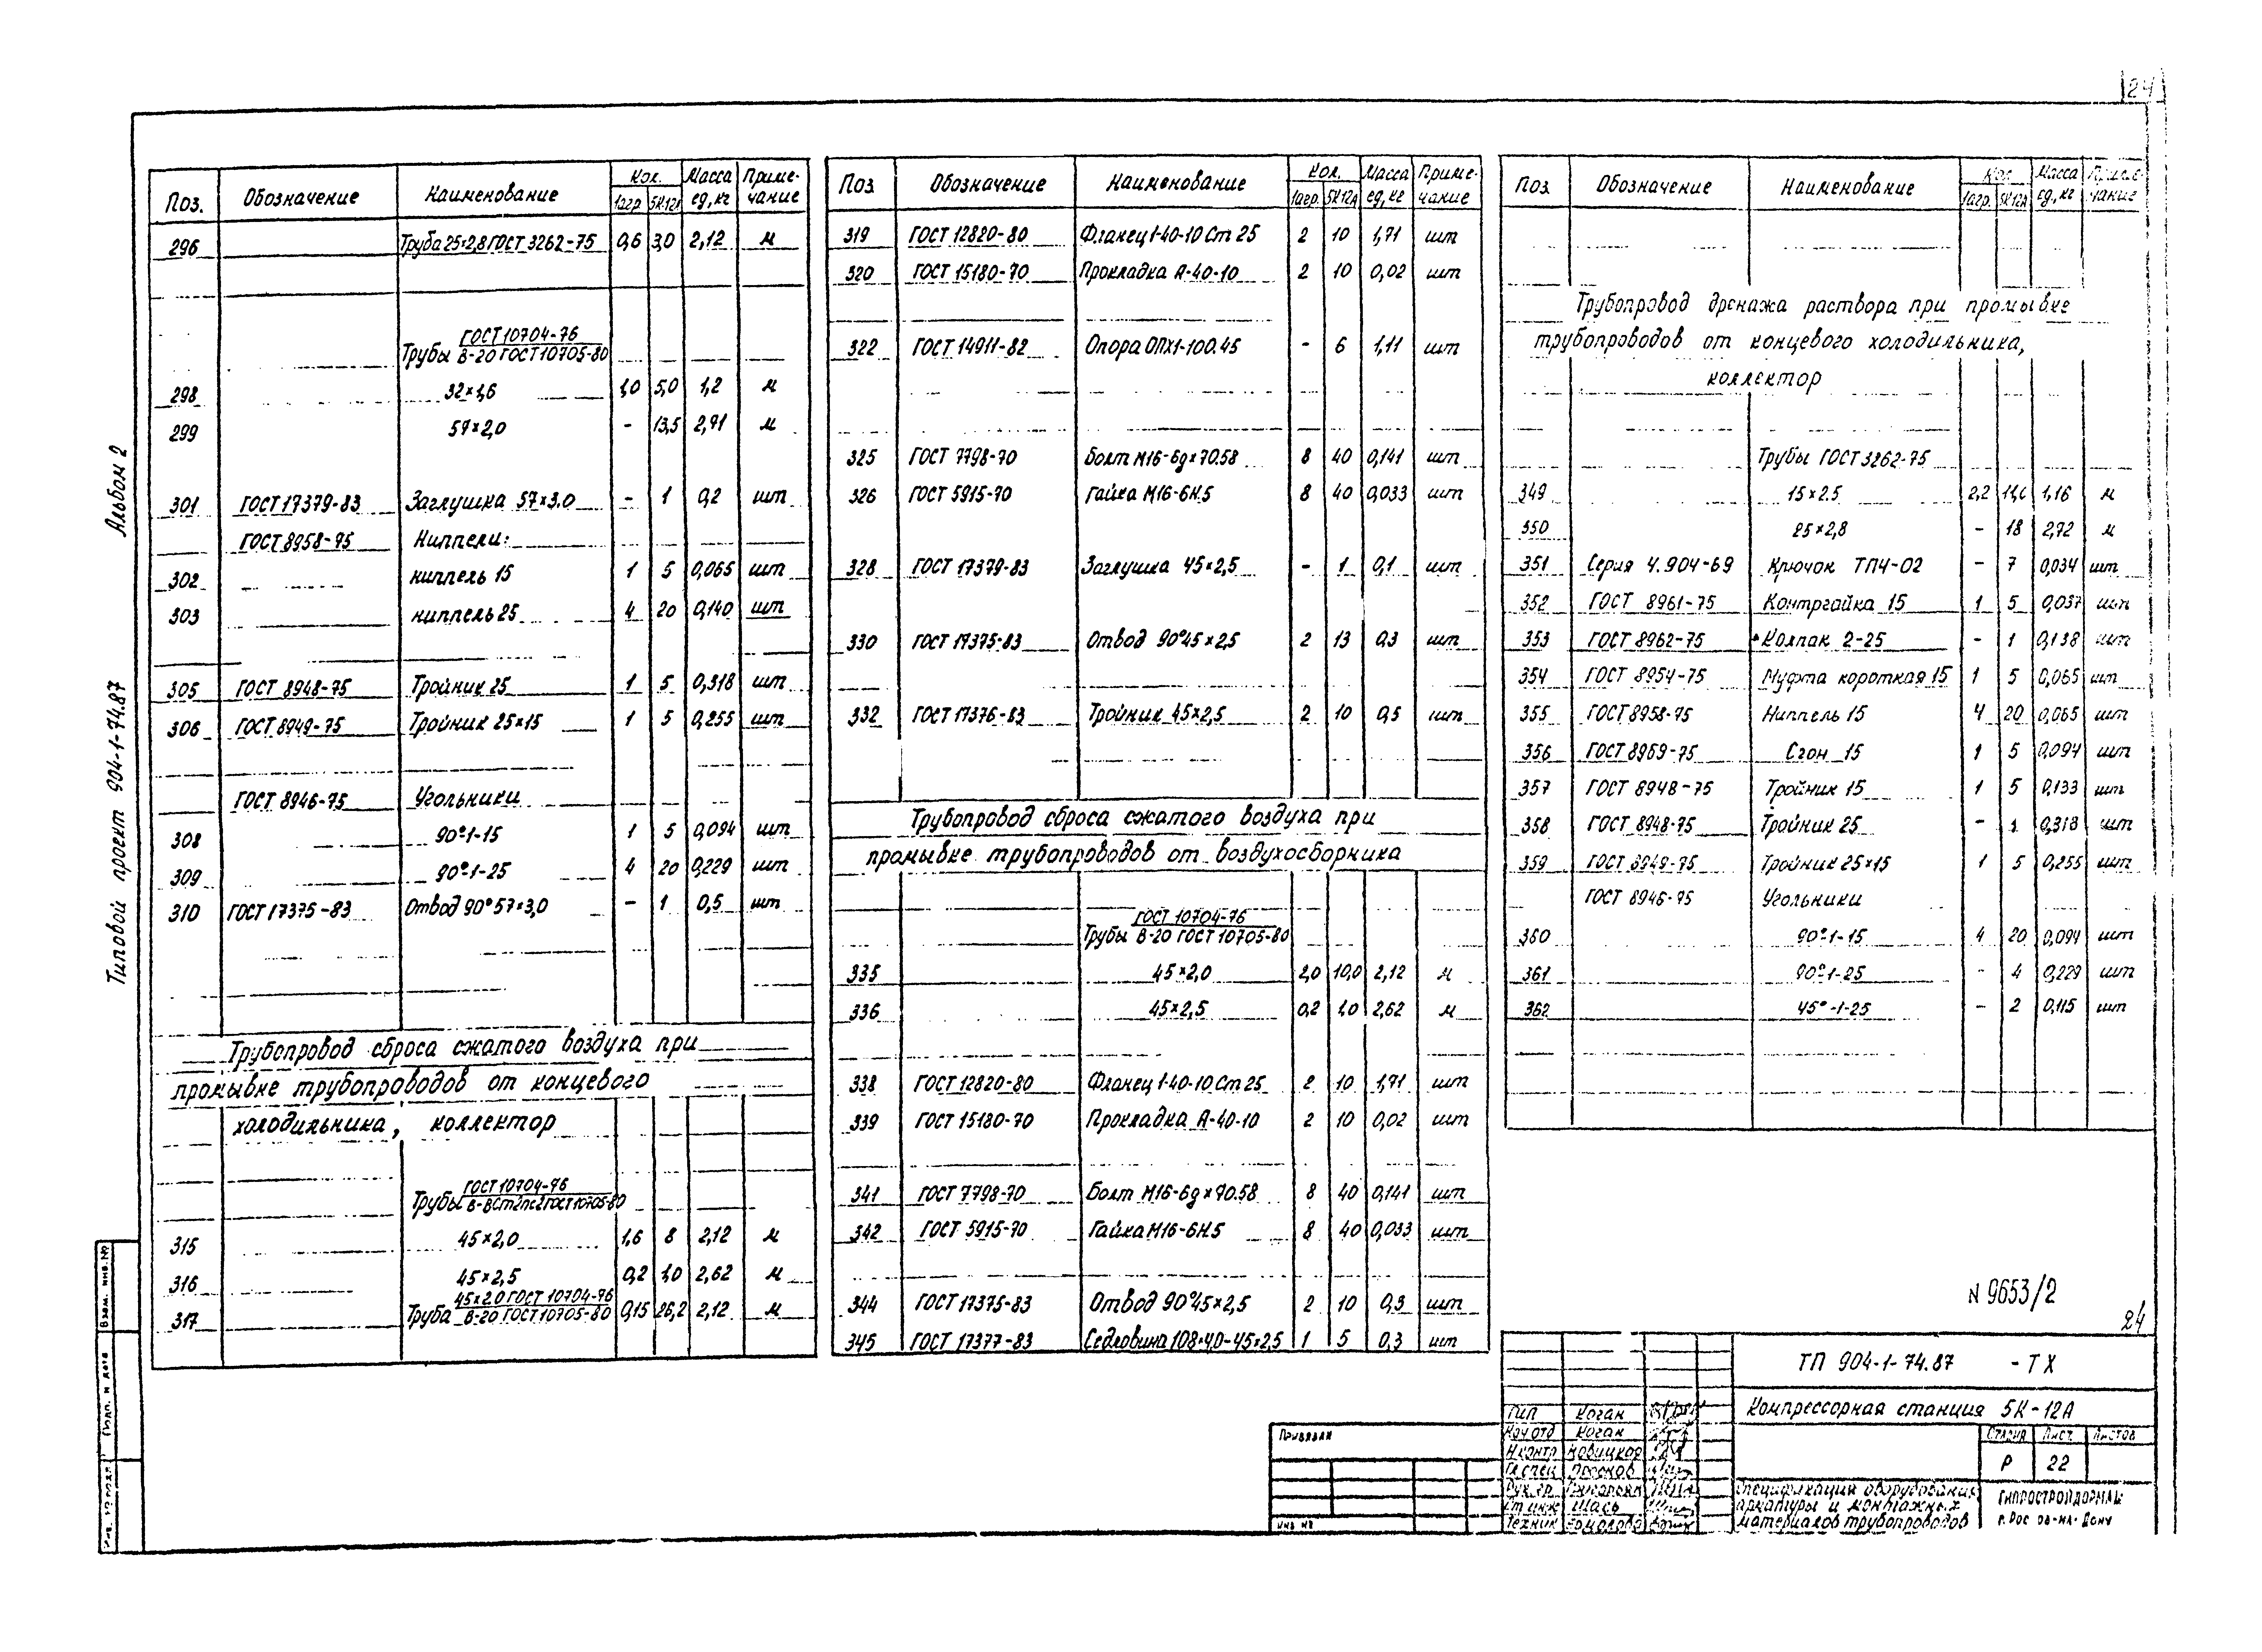 24
Альбом 2
Типовой проект 904-1-74.87
Поз. Обозначение Наименование Кол. Масса ед, кг Приме-чание
1агр. 5К12А
296 Труба 25×2,8 ГОСТ 3262-75 0,6 3,0 2,12 м
ГОСТ 10704-76
Трубы В-20 ГОСТ 10705-80
298 32×1,6 1,0 5,0 1,2 м
299 57×2,0 - 13,5 2,71 м
301 ГОСТ 17379-83 Заглушка 57×3.0 - 1 0,2 шт
ГОСТ 8958-75 Ниппели:
302 ниппель 15 1 5 0,065 шт
303 ниппель 25 4 20 0,140 шт
305 ГОСТ 8948-75 Тройник 25 1 5 0,318 шт
306 ГОСТ 8949-75 Тройник 25×15 1 5 0,255 шт
ГОСТ 8946-75 Угольники
308 90°-1-15 1 5 0,094 шт
309 90°-1-25 4 20 0,229 шт
310 ГОСТ 17375-83 Отвод 90° 57×3,0 - 1 0,5 шт
Трубопровод сброса сжатого воздуха при
промывке трубопроводов от концевого
холодильника, коллектор
ГОСТ 10704-76
Трубы В-ВСт2пс2 ГОСТ 10705-80
315 45×2,0 1,6 8 2,12 м
316 45×2,5 0,2 1,0 2,62 м
45×2.0 ГОСТ 10704-76
317 Труба В-20 ГОСТ 10705-80 0,15 26,2 2,12 м
Поз Обозначение Наименование Кол. Масса ед, кг Приме-чание
1агр. 5К12А
319 ГОСТ 12820-80 Фланец 1-40-10 Ст 25 2 10 1,71 шт
320 ГОСТ 15180-70 Прокладка А-40-10 2 10 0,02 шт
322 ГОСТ 14911-82 Опора ОПХ1-100.45 - 6 1,11 шт
325 ГОСТ 7798-70 Болт М16-6g×70.58 8 40 0,141 шт
326 ГОСТ 5915-70 Гайка М16-6Н.5 8 40 0,033 шт
328 ГОСТ 17379-83 Заглушка 45×2,5 - 1 0,1 шт
330 ГОСТ 17375-83 Отвод 90° 45×2,5 2 13 0,3 шт
332 ГОСТ 17376-83 Тройник 45×2,5 2 10 0,5 шт
Трубопровод сброса сжатого воздуха при
промывке трубопроводов от воздухосборника
ГОСТ 10704-76
Трубы В-20 ГОСТ 10705-80
335 45×2,0 2,0 10,0 2,12 м
336 45×2,5 0,2 1,0 2,62 м
338 ГОСТ 12820-80 Фланец 1-40-10 Ст 25 2 10 1,71 шт
339 ГОСТ 15180-70 Прокладка А-40-10 2 10 0,02 шт
341 ГОСТ 7798-70 Болт М16-6g×70.58 8 40 0,141 шт
342 ГОСТ 5915-70 Гайка М16-6Н.5 8 40 0,033 шт
344 ГОСТ 17375-83 Отвод 90° 45×2,5 2 10 0,3 шт
345 ГОСТ 17377-83 Седловина 108×4,0-45×2,5 1 5 0,3 шт
Поз Обозначение Наименование Кол. Масса ед., кг Приме-чание
1агр. 5К12А
Трубопровод дренажа раствора при промывке
трубопроводов от концевого холодильника,
коллектор
Трубы ГОСТ 3262-75
349 15×2.5 2,2 1,16 м
350 25×2,8 - 18 2,72 м
351 Серия 4.904-69 Крючок ТП4-02 - 7 0,034 шт
352 ГОСТ 8961-75 Контргайка 15 1 5 0,037 шт
353 ГОСТ 8962-75 Колпак 2-25 - 1 0,138 шт
354 ГОСТ 8954-75 Муфта короткая 15 1 5 0,065 шт
355 ГОСТ 8958-75 Ниппель 15 4 20 0,065 шт
356 ГОСТ 8969-75 Сгон 15 1 5 0,094 шт
357 ГОСТ 8948-75 Тройник 15 1 5 0,133 шт
358 ГОСТ 8948-75 Тройник 25 - 1 0,318 шт
359 ГОСТ 8949-75 Тройник 25×15 1 5 0,255 шт
ГОСТ 8946-75 Угольники
360 90°-1-15 4 20 0,094 шт
361 90°-1-25 - 4 0,229 шт
362 45°-1-25 - 2 0,115 шт
N 9653/2
24
ТП 904-1-74.87 -ТХ
Компрессорная станция 5К-12А
Привязан
Инв №
ГИП Коган
Нач отд Коган
Н контр Новицкая
Гл спец
Рук. гр.
Ст инж Шась
Техник
Стадия Лист Листов
Р 22
Спецификация оборудования
арматуры и монтажных
материалов трубопроводов
ГИПРОСТРОЙДОРМАШ
г. Рос ов-на-Дону
Взам. инв. №
Подп. и дата
Инв. № подл.